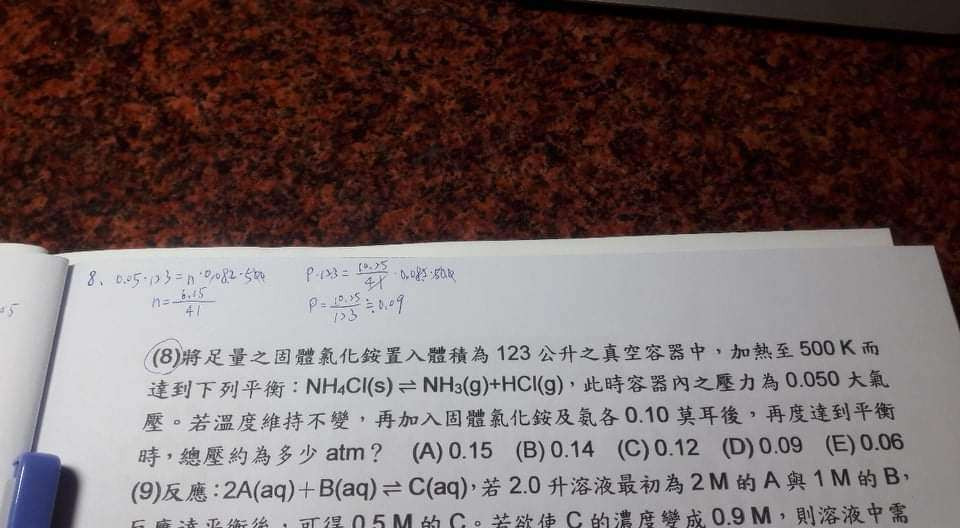 8、 0.05·123=n·0.082·500 P·123=10.25/41·0.082·500
n=6.15/41 P=10.25/123≒0.09
(8)將足量之固體氯化銨置入體積為 123 公升之真空容器中，加熱至 500 K 而
達到下列平衡：NH₄Cl(s)⇌NH₃(g)+HCl(g)，此時容器內之壓力為 0.050 大氣
壓。若溫度維持不變，再加入固體氯化銨及氨各 0.10 莫耳後，再度達到平衡
時，總壓約為多少 atm？ (A) 0.15 (B) 0.14 (C) 0.12 (D) 0.09 (E) 0.06
(9)反應：2A(aq)＋B(aq)⇌C(aq)，若 2.0 升溶液最初為 2 M 的 A 與 1 M 的 B，
反應達平衡後，可得 0.5 M 的 C。若欲使 C 的濃度變成 0.9 M，則溶液中需